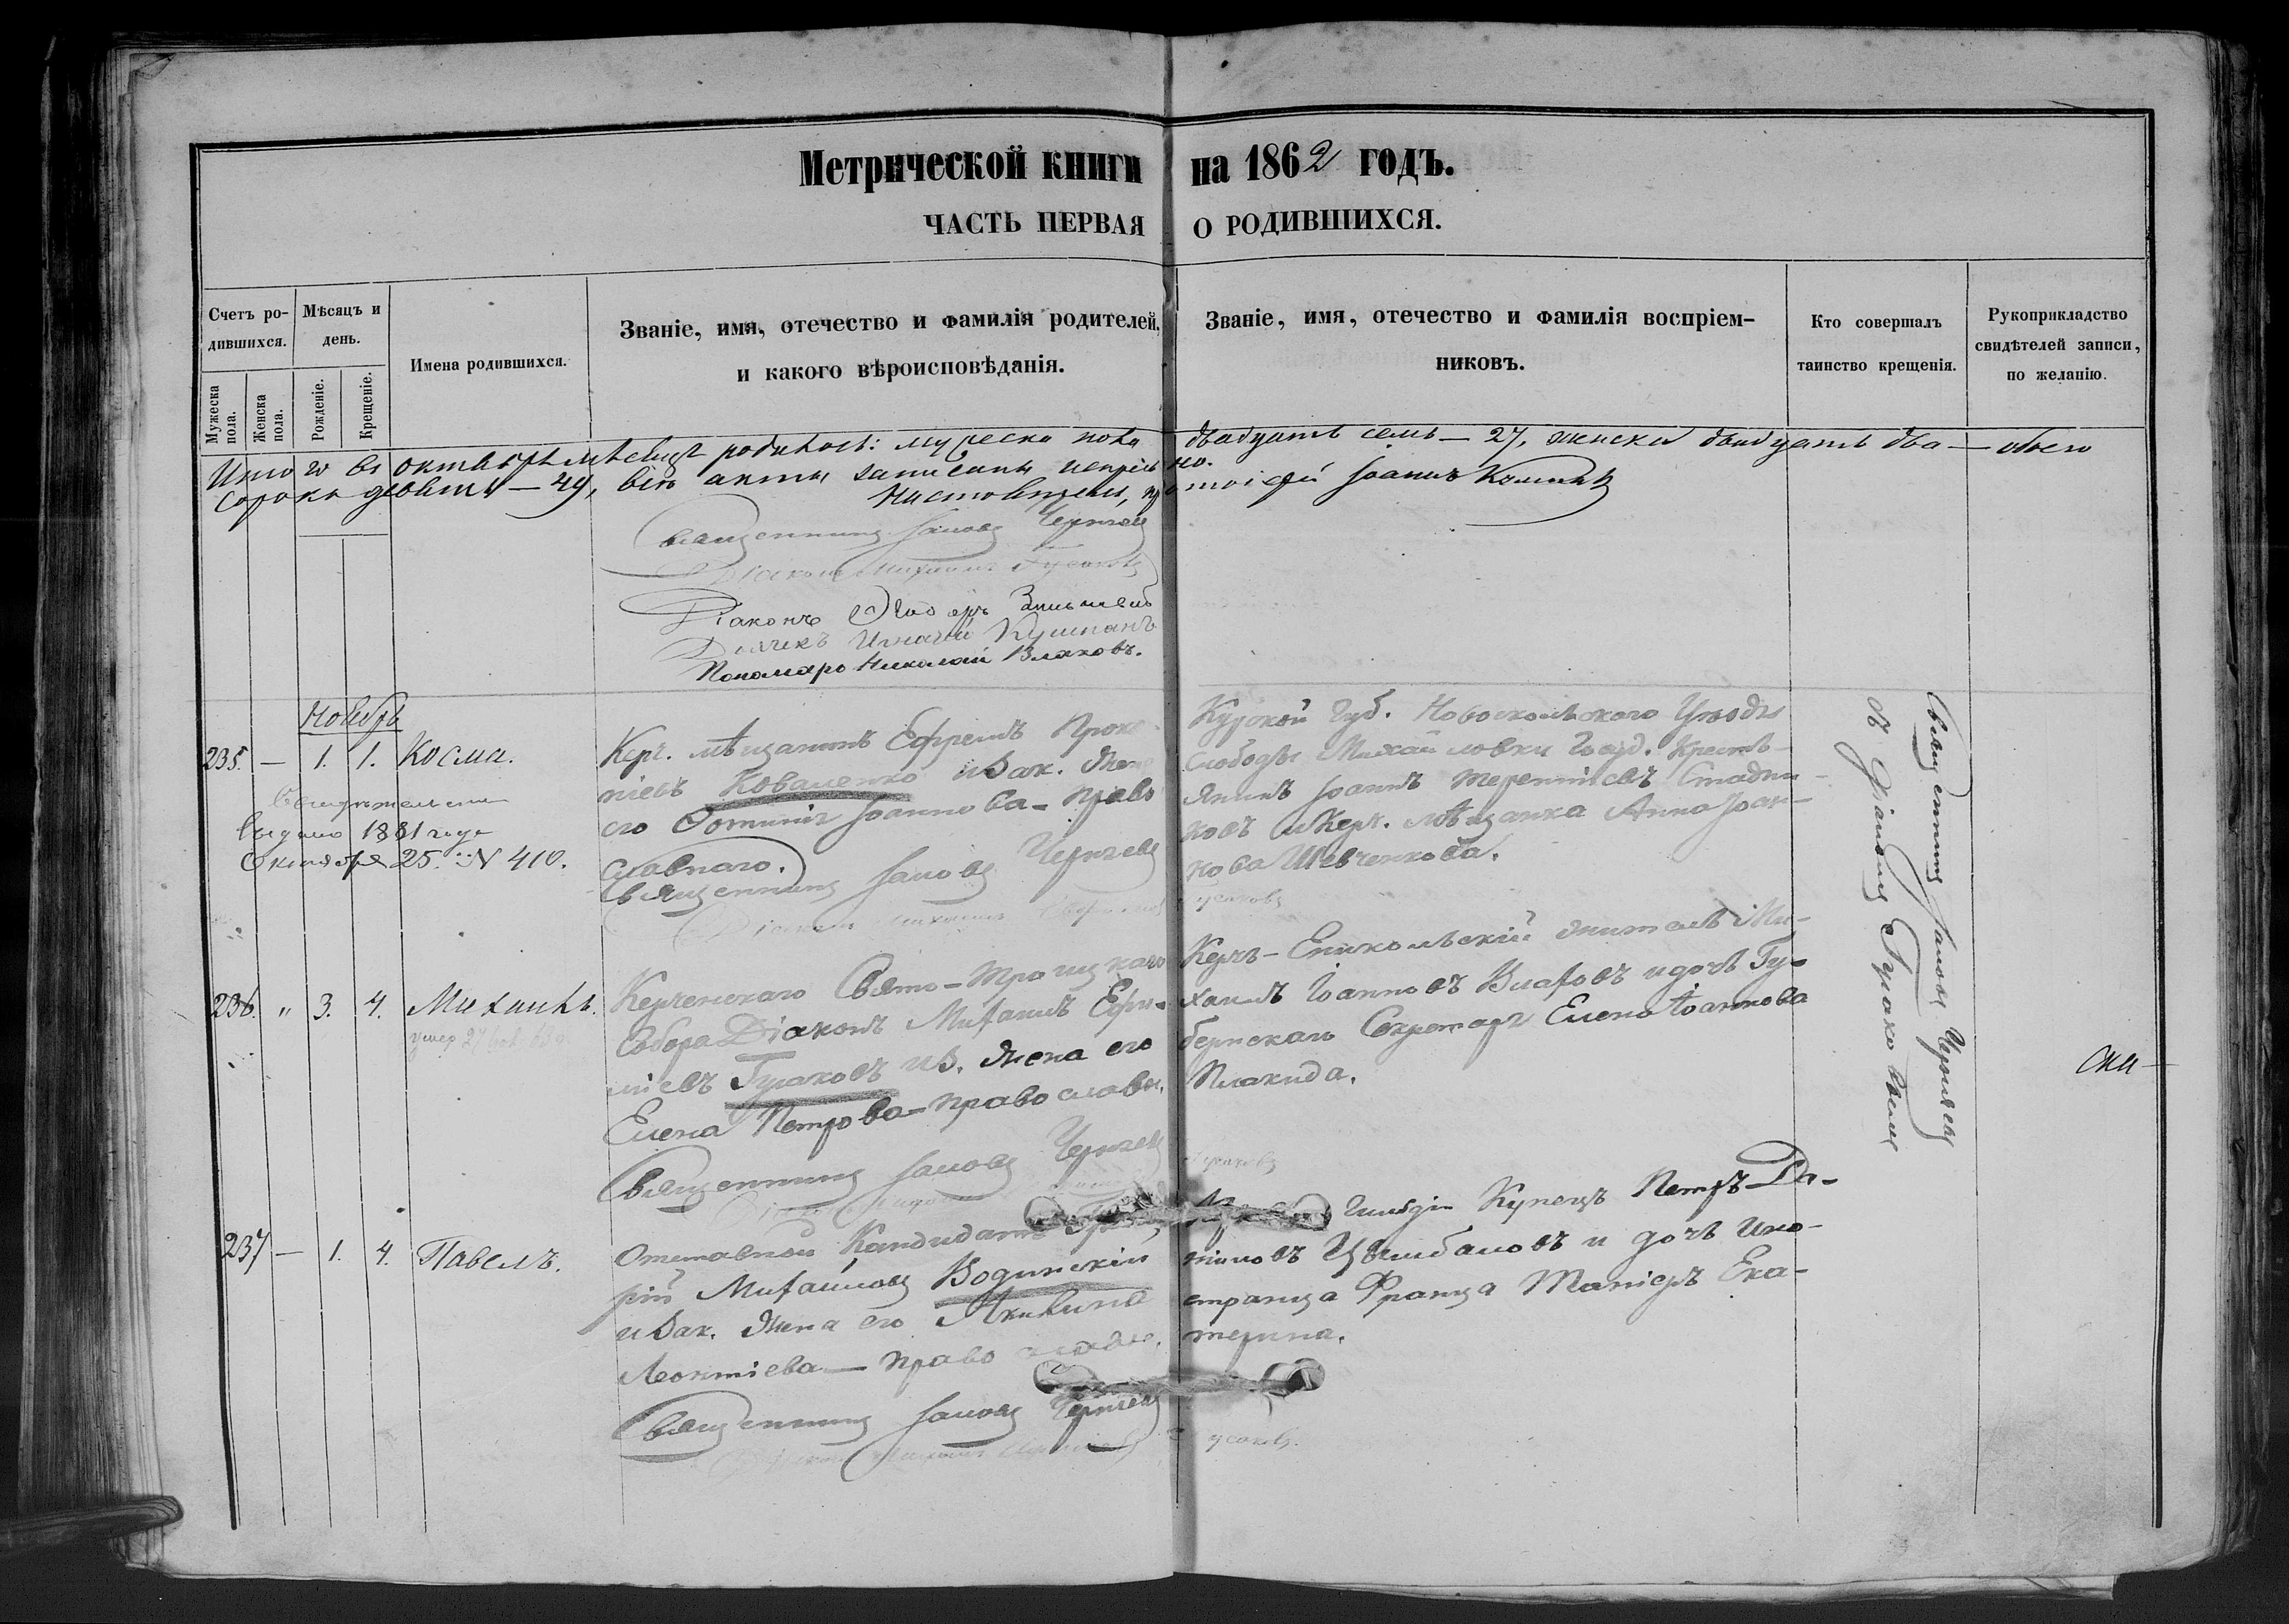 Метрической книги на 1862 годъ.
ЧАСТЬ ПЕРВАЯ О РОДИВШИХСЯ.
Счетъ ро-
дившихся.
Мужеска пола.
Женска пола.
Мѣсяцъ и
день.
Рожденіе.
Крещеніе.
Имена родившихся.
Званіе, имя, отечество и фамилія родителей,
и какого вѣроисповѣданія.
Званіе, имя, отечество и фамилія воспріем-
никовъ.
Кто совершалъ
таинство крещенія.
Рукоприкладство
свидѣтелей записи,
по желанію.
Итого въ октябрѣ мѣсяцѣ родилось: мужеска пола двадцать семь — 27, женска двадцать два — обоего
сорокъ девять — 49, акты записаны
протоіерей Іоаннъ
Священникъ Іаковъ Черняев
Діаконъ Михаилъ Гусаковъ
Діаконъ
Дьячекъ Игнатій
Пономарь Николай Влаховъ.
Ноябрь
235. — 1. 1. Косма.
Свидѣтельство
выдано 1881 года
Октября 25. № 410.
Керч. мѣщанинъ Ефремъ Проко-
піевъ Коваленко и зак. жена
его Фотинія Іоаннова — право
славнаго.
Священникъ Іаковъ Черняев
Діаконъ Михаилъ Гусаковъ
Курской Губ. Новоскольского Уѣзда
Слободы Михайловки Госуд. Кресть-
янинъ Іоаннъ Терентіевъ Стадни-
ковъ и Керч. мѣщанка Анна Іоан-
нова Шевченкова.
236. „ 3. 4. Михаилъ.
умер 27
Керченскаго Свято-Троицкаго
Собора Діаконъ Михаилъ Ефи-
міевъ Гусаковъ и з. жена его
Елена Петрова — православн.
Священникъ Іаковъ Черняев
Гусаковъ
Керчь-Еникольскій житель Ми-
хаилъ Іоанновъ Влаховъ и дочь Гу-
бернскаго Секретаря Елена Іоаннова
Плакида.
237 — 1. 4. Павелъ.
Отставной Кандидатъ
рій Михайловъ Водинскій
и зак. жена его Акилина
Леонтіева — право славн.
Священникъ Іаковъ Черняев
Гусаковъ.
Гильдіи Купецъ Петръ Да-
ниловъ Цымбаловъ и дочь Ино-
странца Франца Таніеръ Ека-
терина.
Священникъ Іаковъ Черняев
съ Діакономъ Гусаковымъ